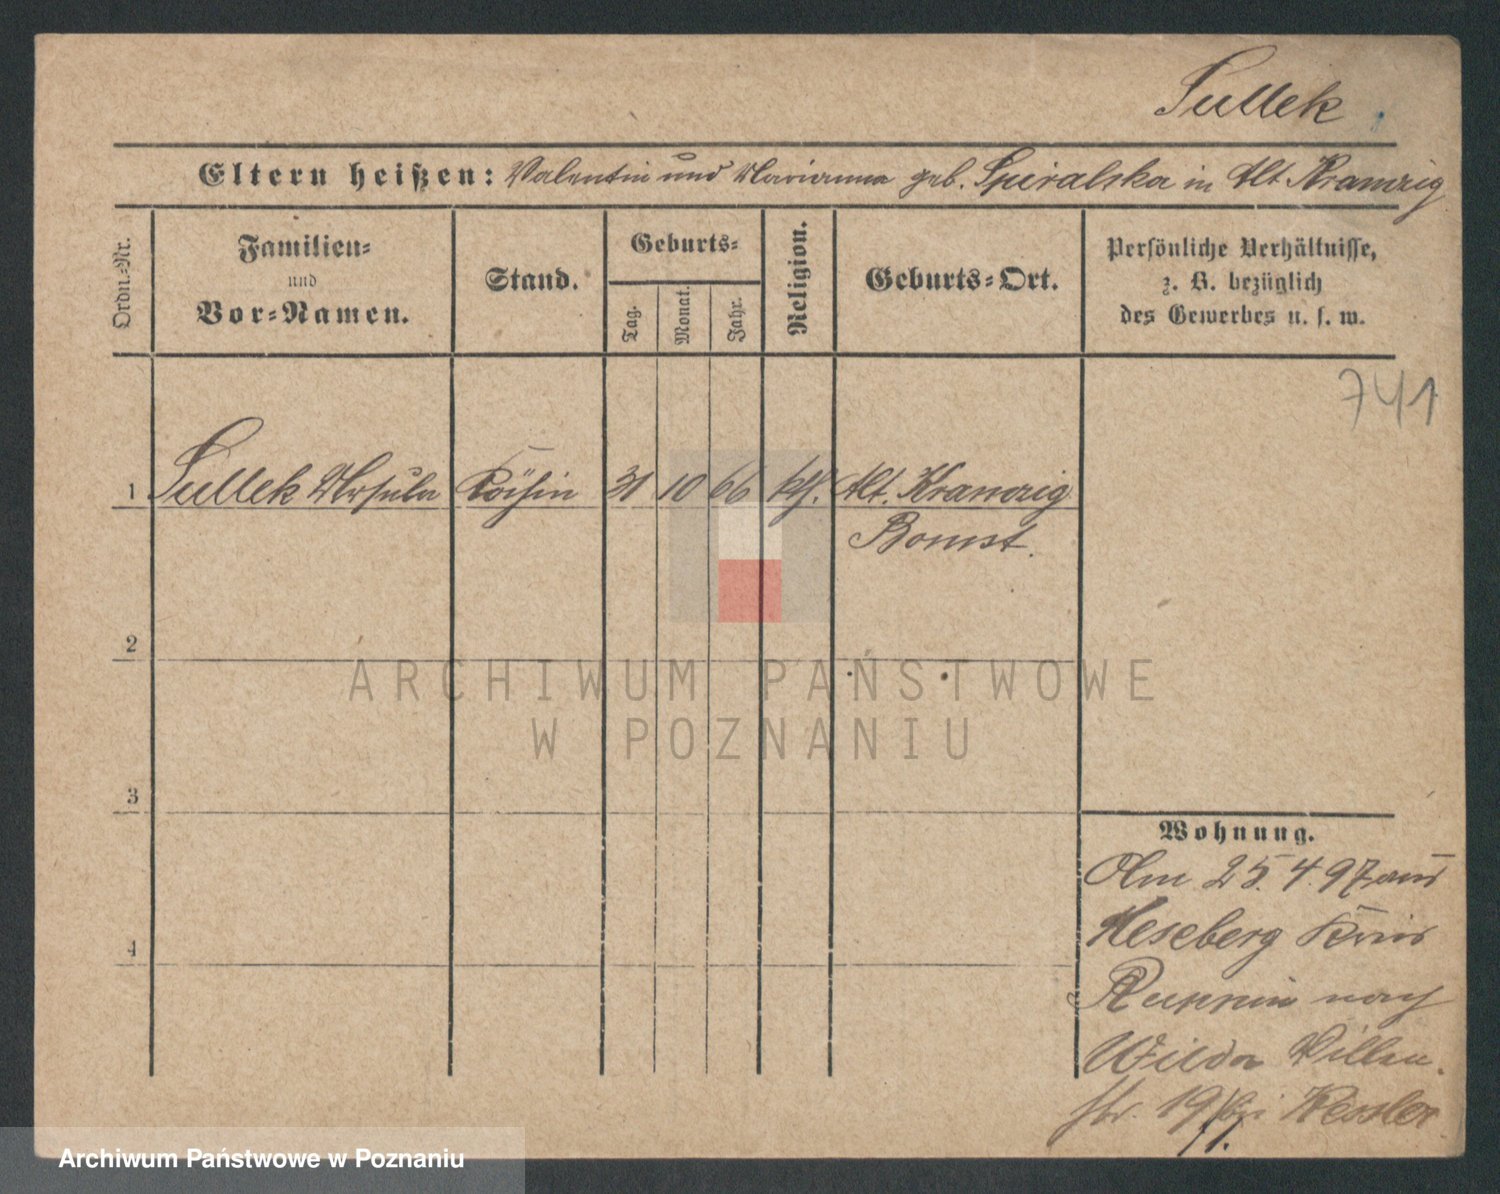 Sullek
Eltern heißen: Valentin und Marianna geb. Spiralska in Alt Kramzig
Ordn.-Nr.
Familien-
und
Vor-Namen.
Stand.
Geburts-
Tag.
Monat.
Jahr.
Religion.
Geburts-Ort.
Persönliche Verhältnisse,
z. B. bezüglich
des Gewerbes u. s. w.
741
1 Sullek Ursula Köchin 31 10 66 kth. Alt. Kramzig
Bomst.
2
3
4
ARCHIWUM PAŃSTWOWE
W POZNANIU
Wohnung.
Am 25. 4. 97 aus
Meseberg Kreis
Ruppin nach
Wilda Villen.
str. 19 bei Kessler
Archiwum Państwowe w Poznaniu